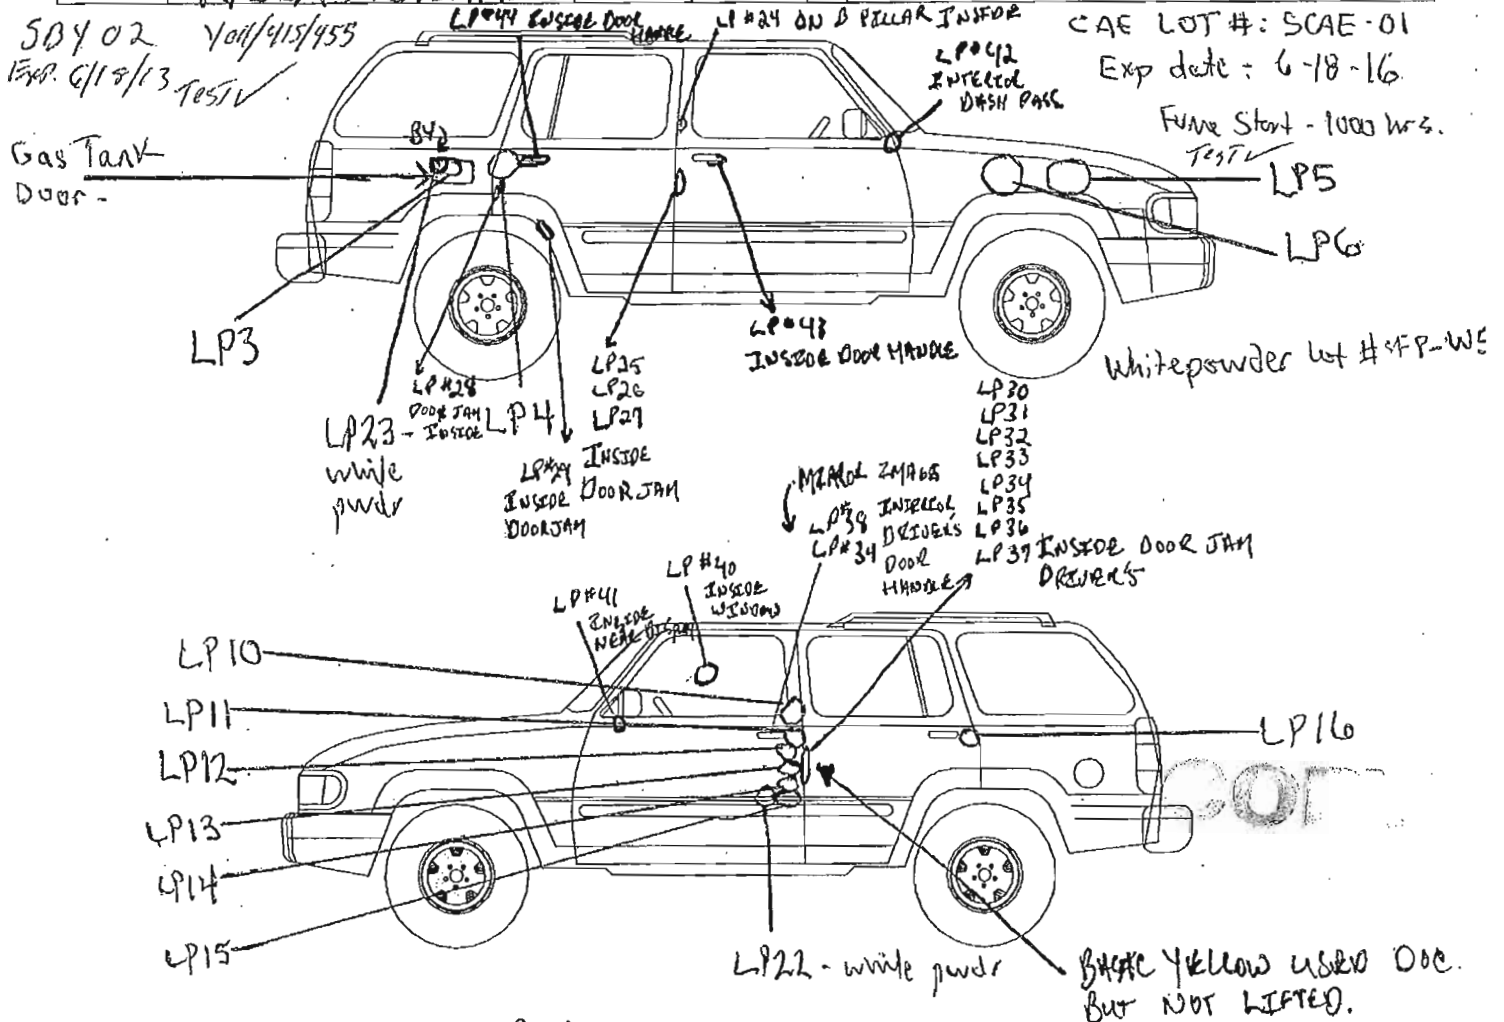 LP#44 INSIDE DOOR
HANDLE
LP#24 ON B PILLAR INSIDE
CAE LOT #: SCAE-01
Exp date: 6-18-16
SBY 02
Exp. 6/18/13 Test✓
LP#42
INTERIOR
DASH PASS
Fume Start - 1000 hrs.
Test✓
Gas Tank
Door -
LP5
LP6
LP3
LP#43
INSIDE DOOR HANDLE
Whitepowder Lot #
LP#28
DOOR JAM
INSIDE
LP23 -
white
pwdr
LP4
LP25
LP26
LP27
INSIDE
DOOR JAM
LP#29
INSIDE
DOORJAM
LP30
LP31
LP32
LP33
LP34
LP35
LP36
LP37 INSIDE DOOR JAM
DRIVER'S
MIRROR IMAGE
LP#38
LP#34
INTERIOR
DRIVER'S
DOOR
HANDLE
LP#40
INSIDE
WINDOW
LP#41
INSIDE
NEAR
LP10
LP11
LP12
LP13
LP14
LP15
LP16
LP22 - white pwdr
BASIC YELLOW USED DOC.
BUT NOT LIFTED.